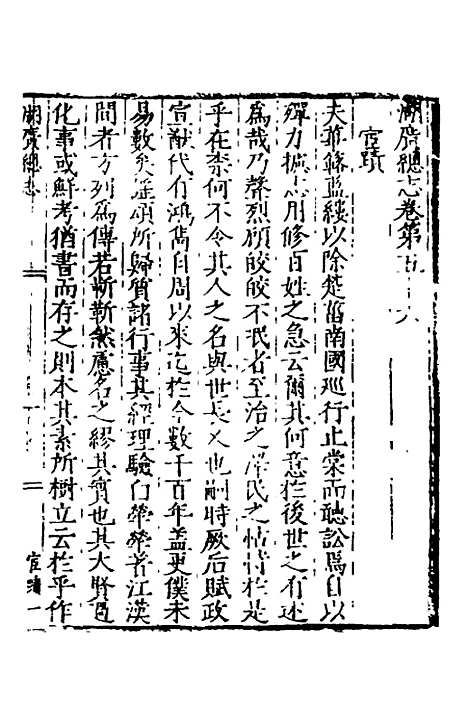 湖廣總志卷第五十六
宦蹟
夫華絛藍綬以除楚舊南國巡行止棠而聽訟爲自以
殫力摅志用修百姓之急云爾其何意於後世之有述
爲哉乃聲烈頋皎皎不泯者至治之澤民之怙恃於是
乎在柰何不令其人之名與世長久也嗣時厥后賦政
宣猷代有鴻雋自周以來迄於今數千百年盖更僕未
易數矣雖頌所歸質諸行事其經理驗白犖犖者江漢
間者方列爲傳若斬斬然慮名之繆其實也其大賢過
化事或鮮考猶書而存之則本其素所樹立云於乎作
湖廣總志
宦蹟一